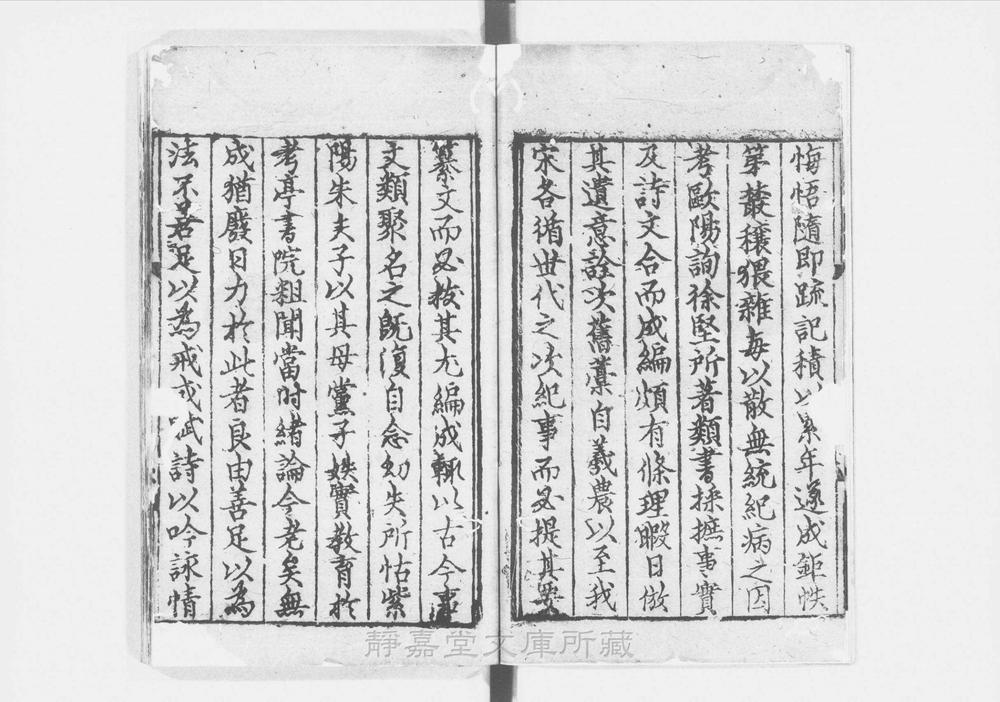 悔悟隨即䟽記積以累年遂成鉅帙
第叢穰猥雜每以散無統紀病之因
考歐陽詢徐堅所著類書採摭事實
及詩文合而成編頗有條理暇日倣
其遺意詮次舊藁自羲農以至我
宋各循世代之次紀事而必提其要
纂文而必拔其尤編成輙以古今事
文類聚名之既復自念幼失所怙紫
陽朱夫子以其母黨子姪實教育於
考亭書院粗聞當時緒論今老矣無
成猶廢日力於此者良由善足以為
法不善足以為戒或賦詩以吟詠情
靜嘉堂文庫所藏